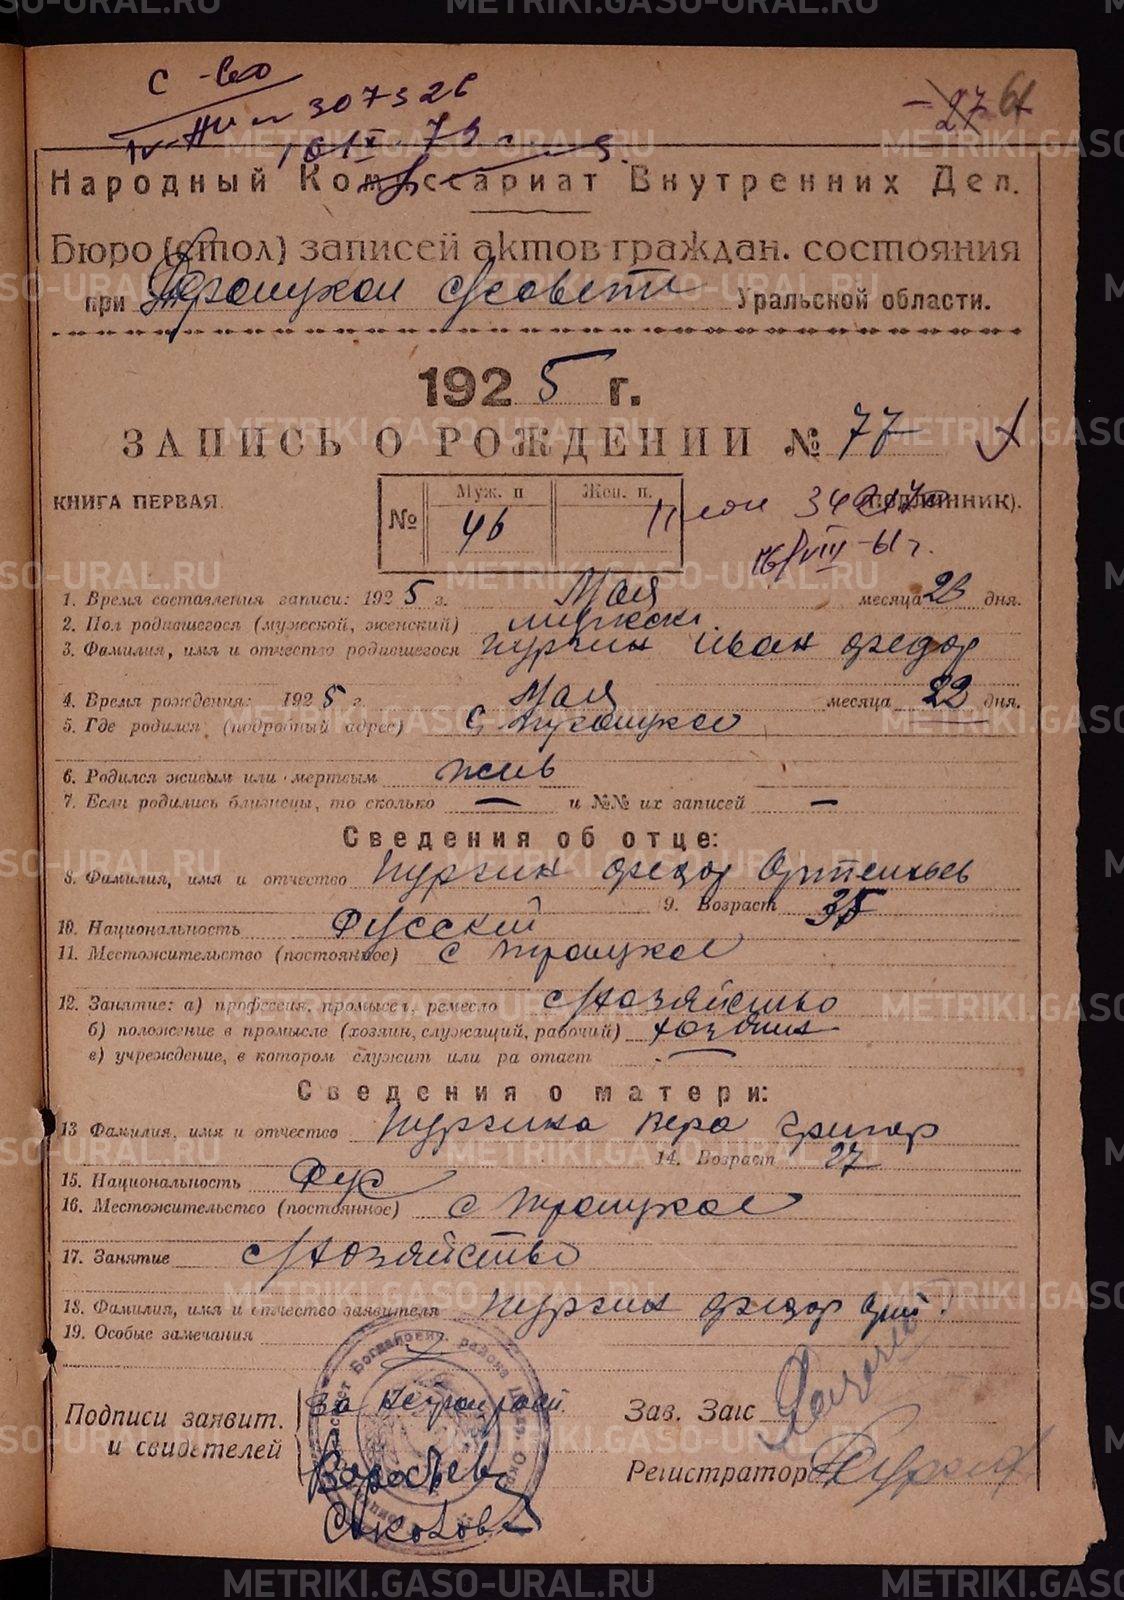 METRIKI.GASO-URAL.RU
С-во
307326
-27 61
Народный Комиссариат Внутренних Дел.
Бюро (стол) записей актов граждан. состояния
при Троицком с/совете Уральской области.
1925 г.
ЗАПИСЬ О РОЖДЕНИИ № 77
КНИГА ПЕРВАЯ. (подлинник).
№ Муж. п Жен. п.
46
16/VIII-61 г.
1. Время составления записи: 1925 г. Мая месяца 23 дня.
2. Пол родившегося (мужской, женский) мужск.
3. Фамилия, имя и отчество родившегося Пургин Иван Федор
4. Время рождения: 1925 г. Мая месяца 22 дня.
5. Где родился (подробный адрес) С Троицкое
6. Родился живым или мертвым жив
7. Если родились близнецы, то сколько — и №№ их записей —
Сведения об отце:
8. Фамилия, имя и отчество Пургин Федор Артемьев
9. Возраст 35
10. Национальность Русский
11. Местожительство (постоянное) с Троицкое
12. Занятие: а) профессия, промысел, ремесло с/хозяйство
б) положение в промысле (хозяин, служащий, рабочий) хозяин
в) учреждение, в котором служит или ра отает —
Сведения о матери:
13 Фамилия, имя и отчество Пургина Вера Григор
14. Возраст 27
15. Национальность Рус
16. Местожительство (постоянное) с Троицкое
17. Занятие с/хозяйство
18. Фамилия, имя и отчество заявителя Пургин Федор Арт.
19. Особые замечания
Подписи заявит. и свидетелей
за неграмотн.
Воробьев
Соколов
Зав. Загс
Регистратор Пургин